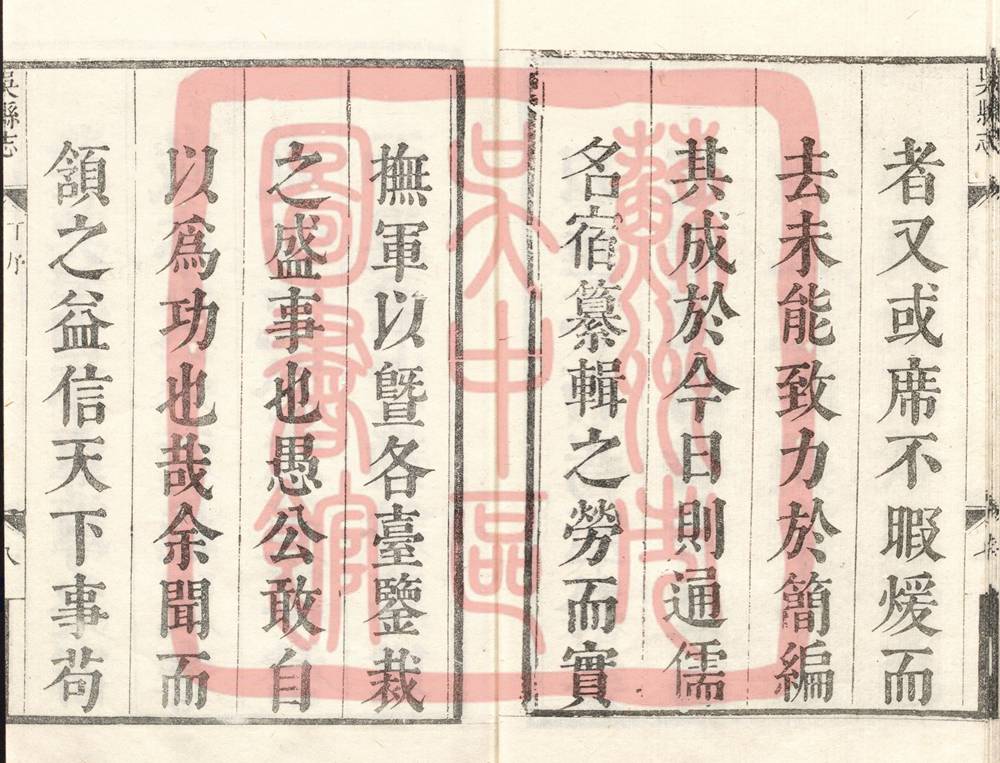 者又或席不暇煖而
去未能致力於簡編
其成於今日則通儒
名宿纂輯之勞而實
撫軍以曁各臺鑒裁
之盛事也愚公敢自
以爲功也哉余聞而
頷之益信天下事苟
吳縣志
序
八
吳縣志
蘇州市
吳中區
圖書館